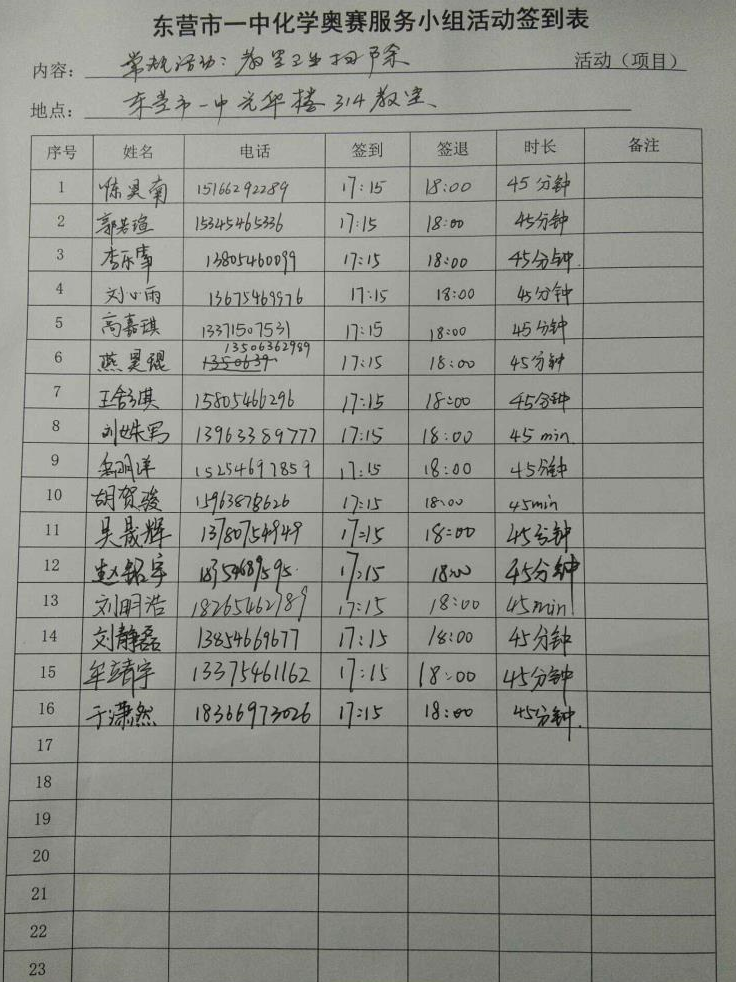 东营市一中化学奥赛服务小组活动签到表
内容：常规活动：教室卫生扫除 活动（项目）
地点：东营市一中光华楼314教室
序号 姓名 电话 签到 签退 时长 备注
1 陈昊南 15166292289 17:15 18:00 45分钟
2 郭若瑄 15345465336 17:15 18:00 45分钟
3 李乐 13805460099 17:15 18:00 45分钟.
4 刘心雨 13675469976 17:15 18:00 45分钟
5 高嘉琪 13371507531 17:15 18:00 45分钟
6 燕昊琨 13506362989 17:15 18:00 45分钟
7 王舒淇 15805466296 17:15 18:00 45分钟
8 刘姝男 13963389777 17:15 18:00 45 min
9 岳明洋 15254697859 17:15 18:00 45分钟
10 胡贺骏 15963878626 17:15 18:00 45min
11 吴晟辉 13780754949 17:15 18:00 45分钟
12 赵铭宇 17:15 18:00 45分钟
13 刘明浩 18265462989 17:15 18:00 45min
14 刘静磊 13854669677 17:15 18:00 45分钟
15 牟靖宇 13375461162 17:15 18:00 45分钟
16 于潇然 18366973026 17:15 18:00 45分钟.
17
18
19
20
21
22
23